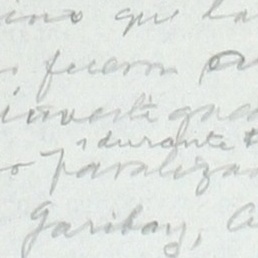 ino que la
fueron
investigac
durante
o paraliza
Garibay, A